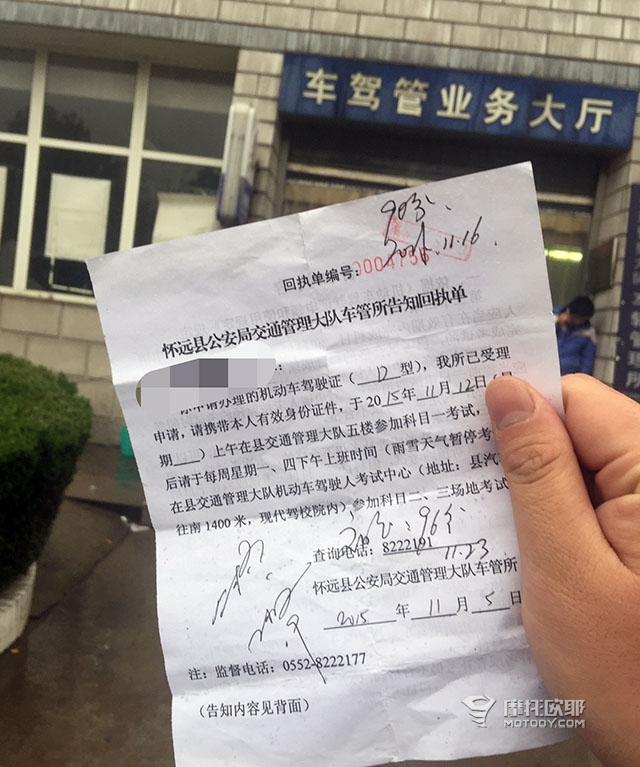 车驾管业务大厅
90分.
11.16
回执单编号:0004756
怀远县公安局交通管理大队车管所告知回执单
你申请办理的机动车驾驶证（ D 型），我所已受理
申请，请携带本人有效身份证件，于2015年11月12日（星
期___）上午在县交通管理大队五楼参加科目一考试，
后请于每周星期一、四下午上班时间（雨雪天气暂停考
在县交通管理大队机动车驾驶人考试中心（地址：县汽
往南1400米，现代驾校院内）参加科目二、三场地考试
96分
查询电话：8222191
11.23
怀远县公安局交通管理大队车管所
2015 年 11 月 5 日
注：监督电话：0552-8222177
（告知内容见背面）
摩托欧耶
MOTOOY.COM